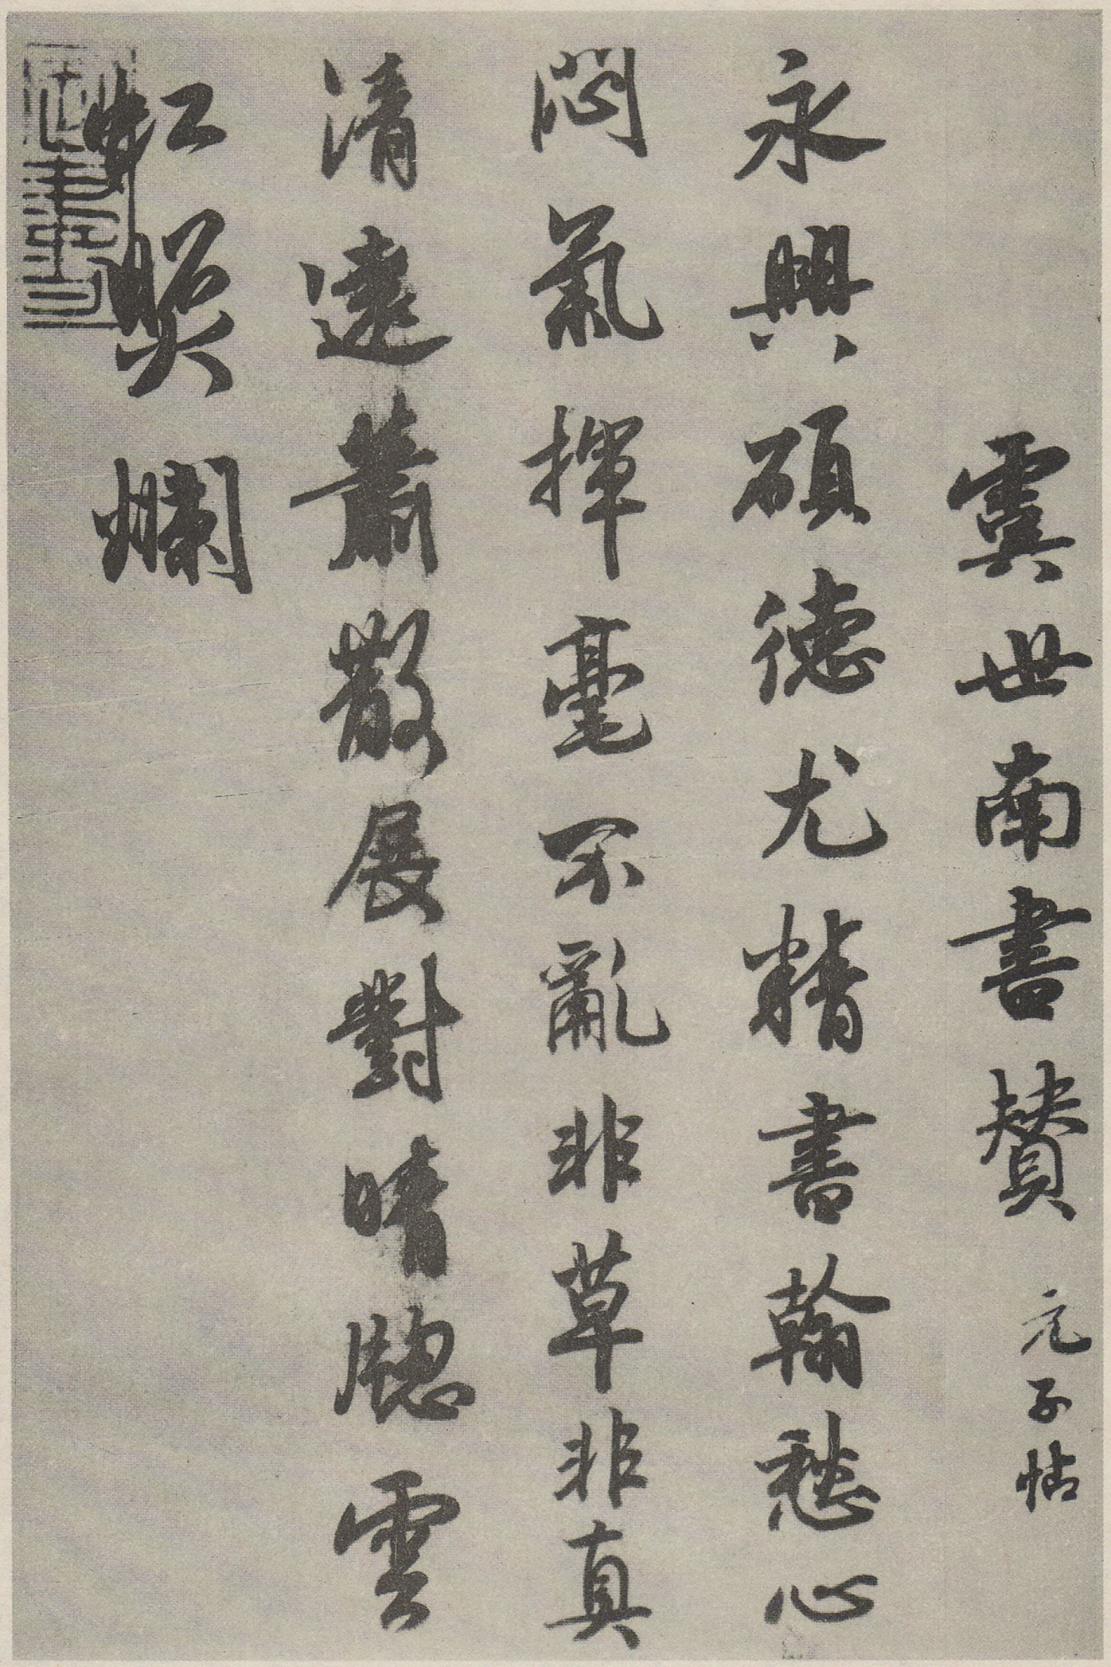 虞世南書賛 元子帖
永興碩德尤精書翰愁心
悶氣揮毫不亂非草非真
清遠蕭散展對晴牕雲
虹照爛